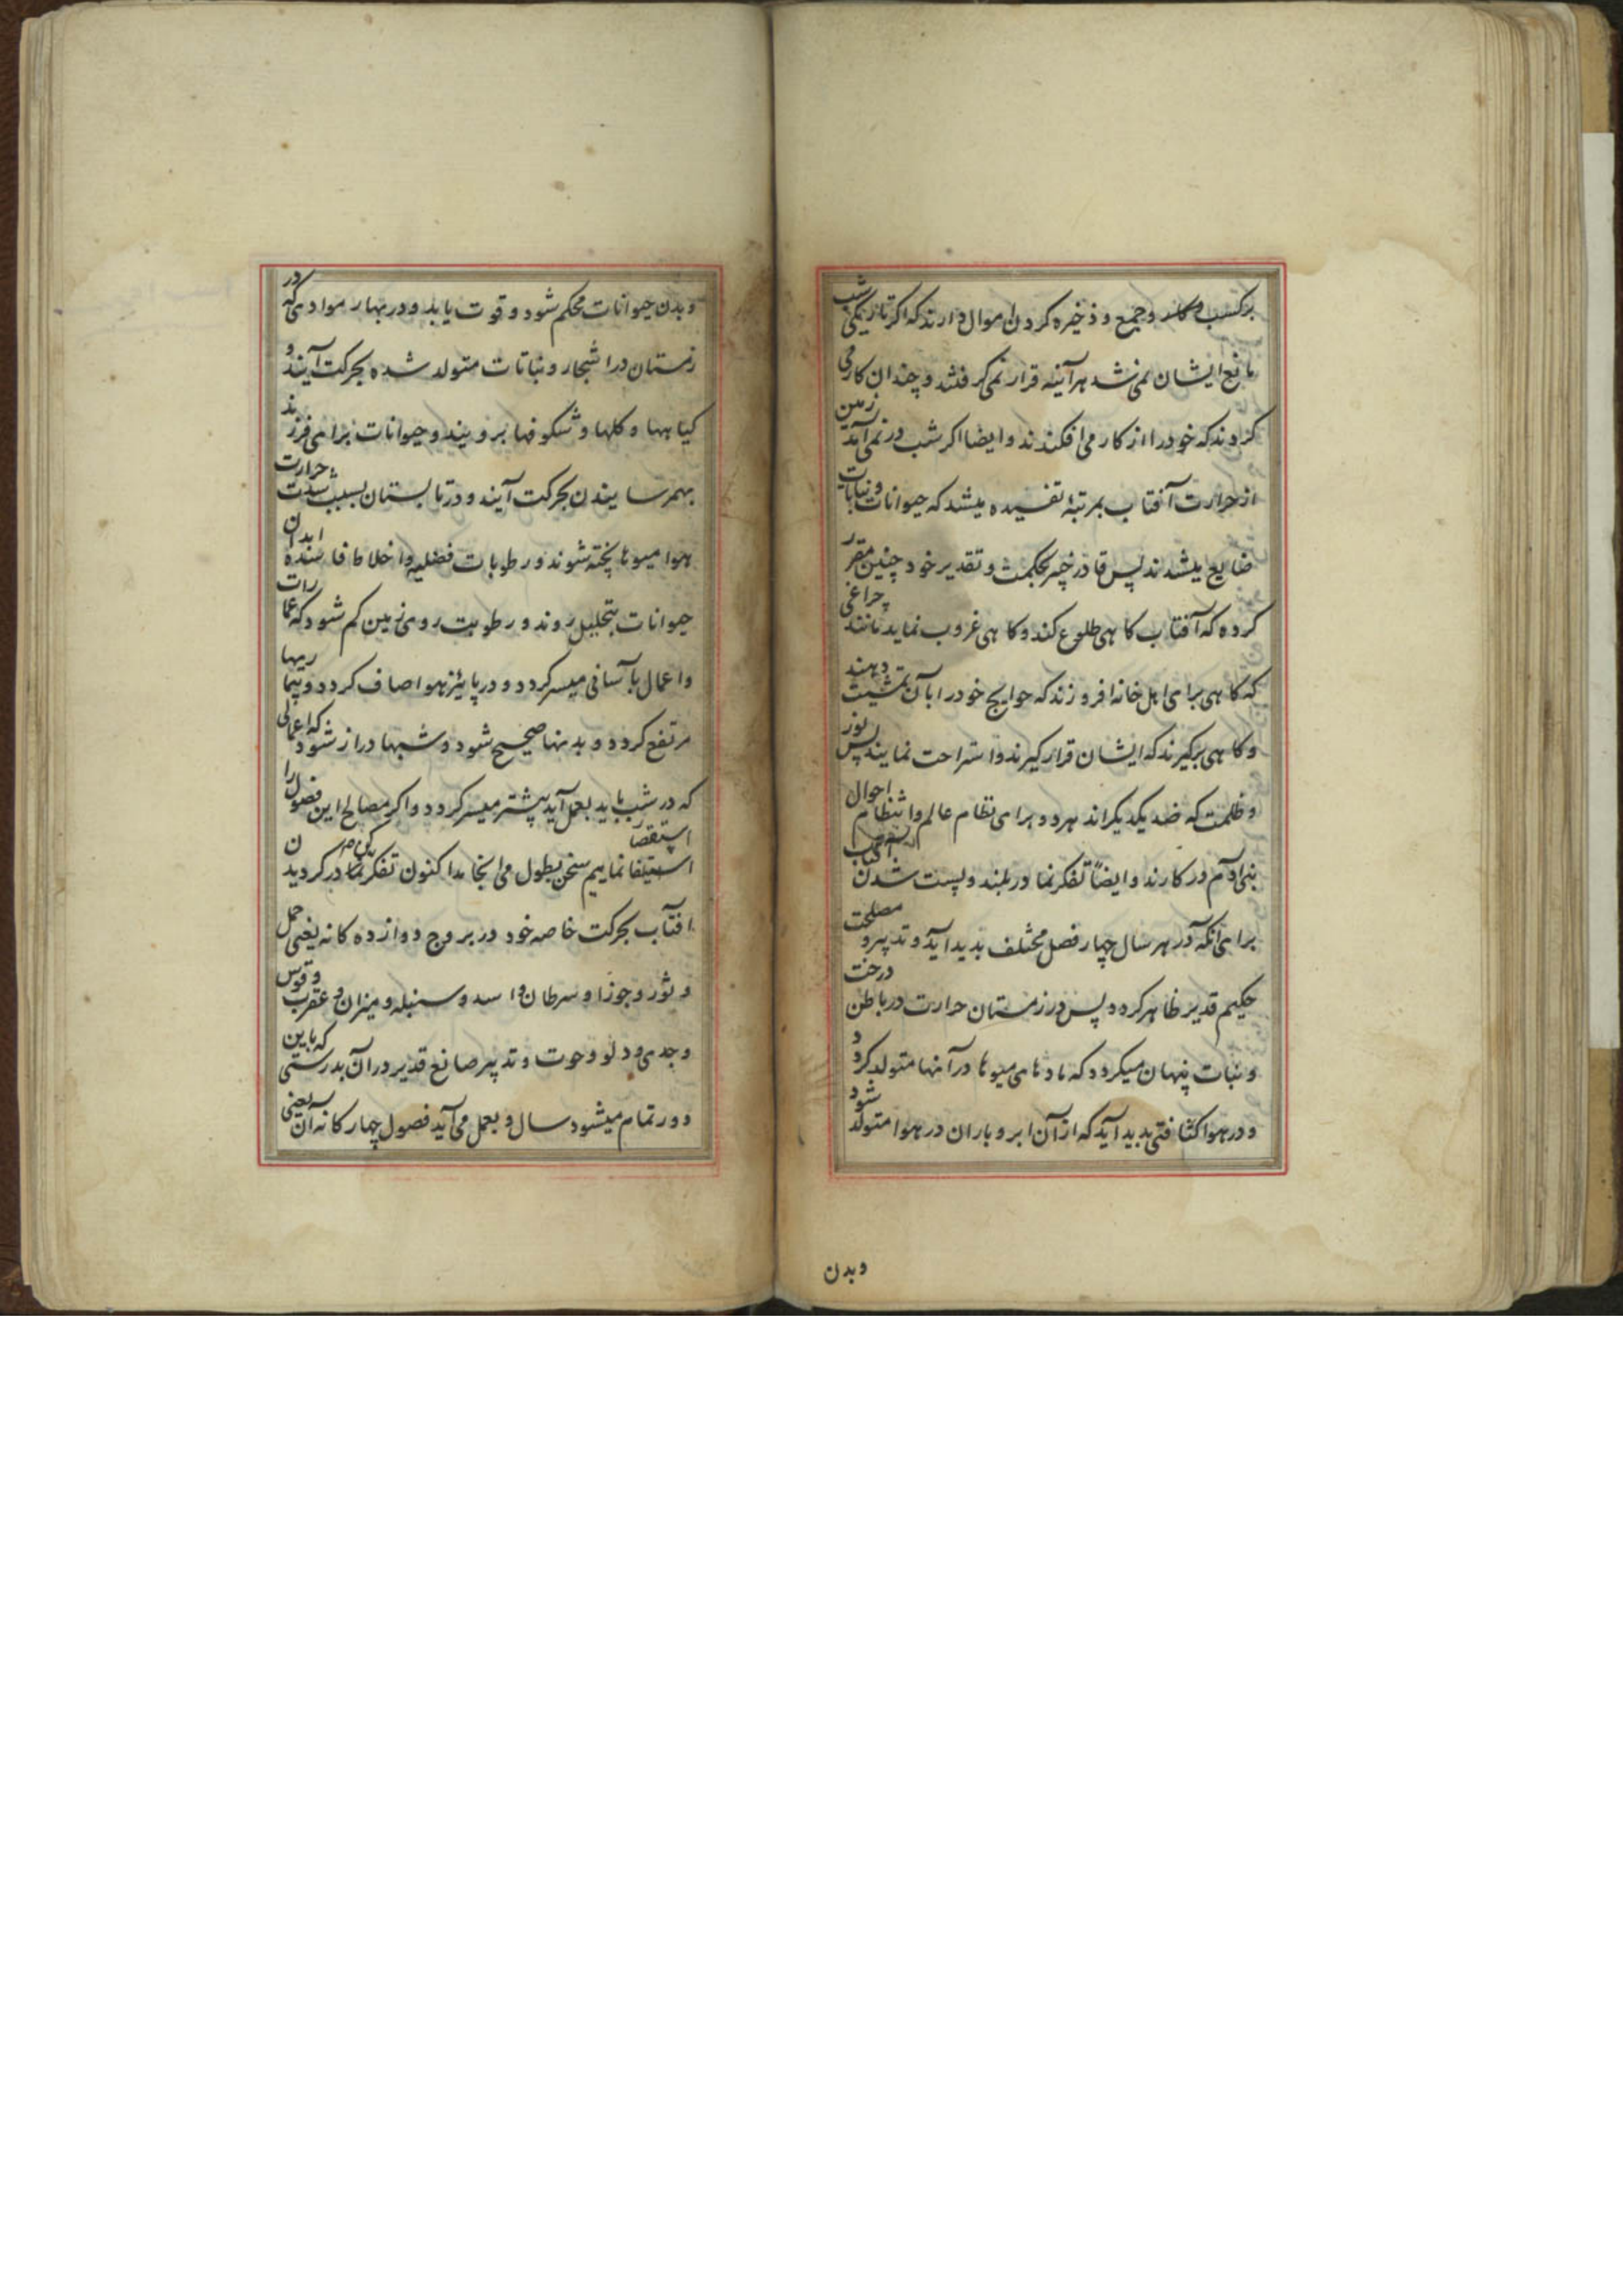 بر کسب و کار و جمع و ذخیره کردن اموال دارند که اگر تاریکی شب
مانع ایشان نمی شد هر آینه قرار نمی گرفتند و چندان کار می
کردند که خود را از کار می افکندند و ایضا اگر شب در نمی آمد زمین
از حرارت آفتاب بمرتبهٔ تفسیده میشد که حیوانات و نباتات
ضایع میشدند پس قادر خبیر بحکمت و تقدیر خود چنین مقرر
کرده که آفتاب کاهی طلوع کند و کاهی غروب نماید مانند چراغی
که کاهی برای اهل خانه افروزند که حوایج خود را بآن تمشیت دهند
و کاهی برگیرند که ایشان قرار گیرند و استراحت نمایند پس نور
و ظلمت که ضد یکدیگراند هر دو برای نظام عالم و انتظام احوال
بنی آدم در کارند و ایضاً تفکر نما در بلند و پست شدن آفتاب
برای آنکه در هر سال چهار فصل مختلف پدید آید و تدبیر و مصلحت
حکیم قدیر ظاهر کردد پس در زمستان حرارت در باطن درخت
و نبات پنهان میکردد که مادهای میوها در آنها متولد کردد
و در هوا کثافتی پدید آید که از آن ابر و باران در هوا متولد شود
وبدن
و بدن حیوانات محکم شود و قوت یابد و در بهار موادی که در
زمستان در اشجار و نباتات متولد شده بحرکت آیند و
کیاهها و کلها و شکوفها برویند و حیوانات برای فرزند
بهمرسانیدن بحرکت آیند و در تابستان بسبب شدت حرارت
هوا میوها پخته شوند و رطوبات فضلیه و اخلاط فاسده ابدان
حیوانات بتحلیل روند و رطوبت روی زمین کم شود که عمارات
و اعمال بآسانی میسر کردد و در پائیز هوا صاف کردد و بیماریها
مرتفع کردد و بدنها صحیح شود و شبها دراز شود که اعمالی
که در شب باید بعمل آید بیشتر میسر کردد و اگر مصالح این فصول را
استقصا
استیفا نماییم سخن بطول می انجامد اکنون تفکر نما در کردیدن
آفتاب بحرکت خاصه خود در بروج دوازده کانه یعنی حمل
و ثور و جوزا و سرطان و اسد و سنبله و میزان و عقرب و قوس
و جدی و دلو و حوت و تدبیر صانع قدیر در آن بدرستی که باین
دور تمام میشود سال و بعمل می آید فصول چهارکانه آن یعنی